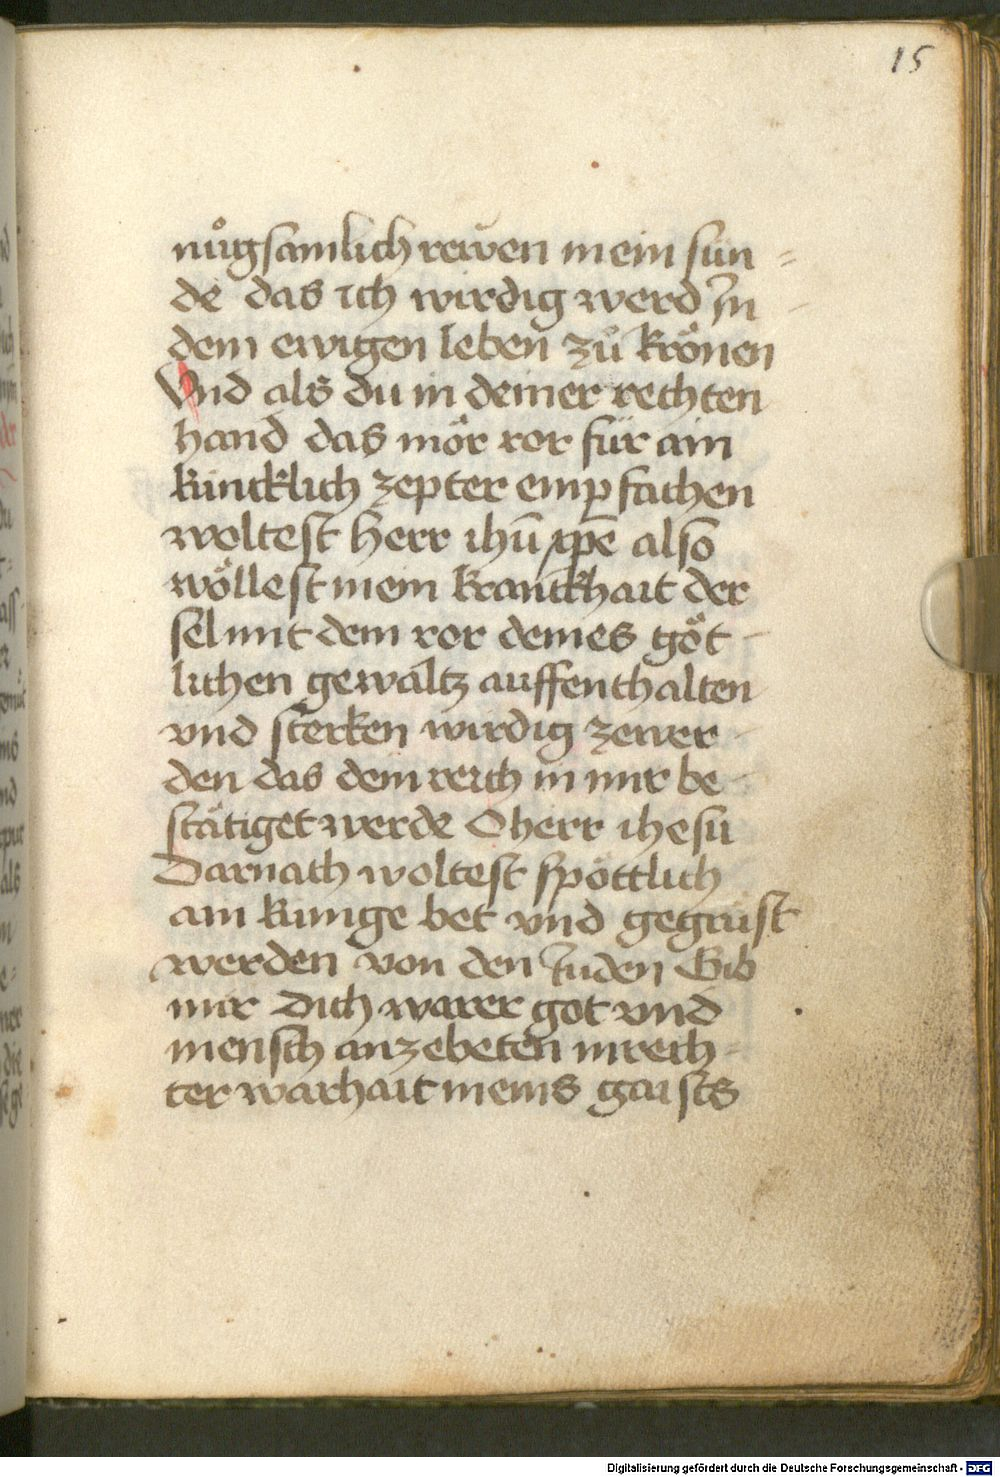 15
nuͦgsamlich rewen mein sün=
de das ich wirdig werd In
dem ewigen leben zuͦ krönen
Vnd als du in deiner rechten
hand das mör ror für ain
künicklich zepter empfachen
woltest herr ihū xp̄e also
wöllest mein kranckhait der
sel mit dem ror deines göt-
lichen gewaltz auffenthalten
vnd sterken wirdig zewer-
den das dein reich in mir be-
stätiget werde O herr ihesu
Darnach woltest spöttlich
ain künige bet vnd gegrüst
werden von den Juden Gib
mir dich warer got vnd
mensch anzebeten in rech-
ter warhait meins gaists
Digitalisierung gefördert durch die Deutsche Forschungsgemeinschaft - DFG